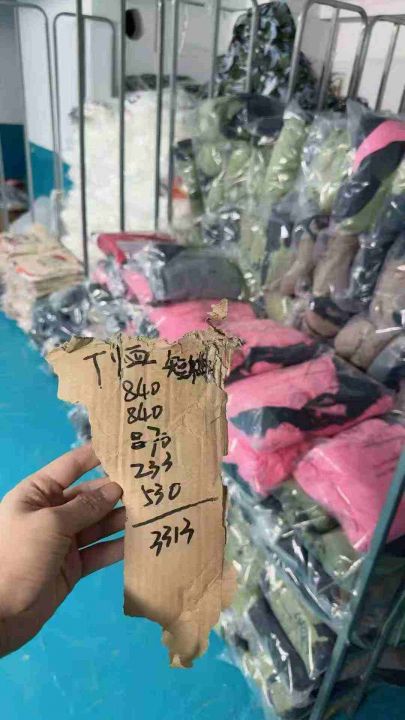 T恤 短
840
840
870
233
530
3313